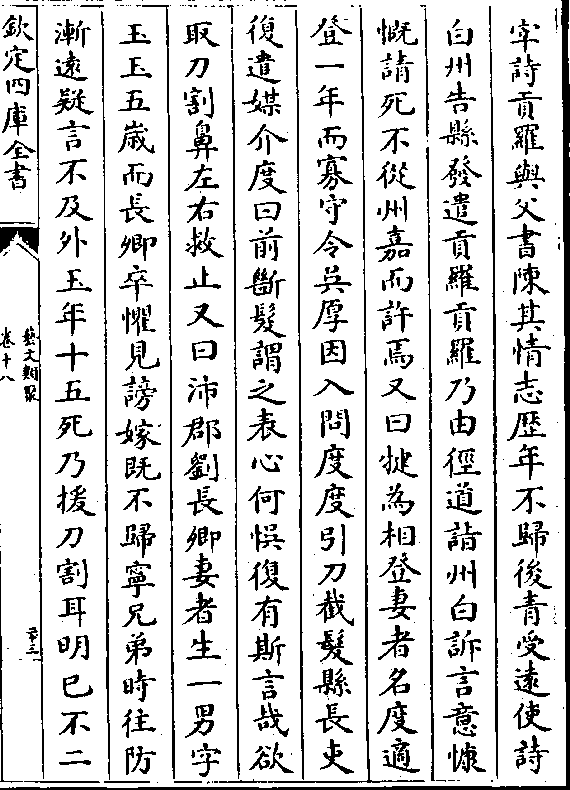 宰詩貢羅與父書陳其情志歴年不歸後青受逺使詩
白州告縣發遣貢羅貢羅乃由徑道詣州白訴言意慷
慨請死不從州嘉而許焉又曰犍為相登妻者名度適
登一年而寡守令呉厚因入問度度引刀截髮縣長吏
復遣媒介度曰前斷髮謂之表心何悞復有斯言哉欲
取刀割鼻左右救止又曰沛郡劉長卿妻者生一男字
玉玉五歳而長卿卒懼見謗嫁既不歸寧兄弟時往防
漸逺疑言不及外玉年十五死乃援刀割耳明已不二
欽定四庫全書
藝文類聚
卷十八